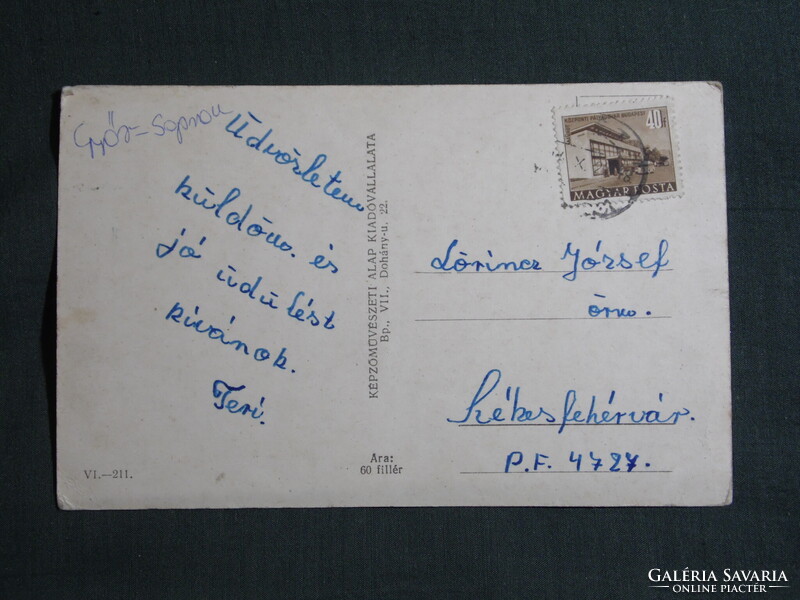 Győr-Sopron
Üdvözletem
küldöm és
jó üdülést
kívánok.
Teri.
VI.—211.
KÉPZŐMŰVÉSZETI ALAP KIADÓVÁLLALATA
Bp., VII., Dohány-u. 22.
Ara:
60 fillér
BUDAPEST
40f
MAGYAR POSTA
Lőrincz József
örm.
Székesfehérvár.
P.F. 4727.
GALÉRIA SAVARIA
ONLINE PIACTÉR